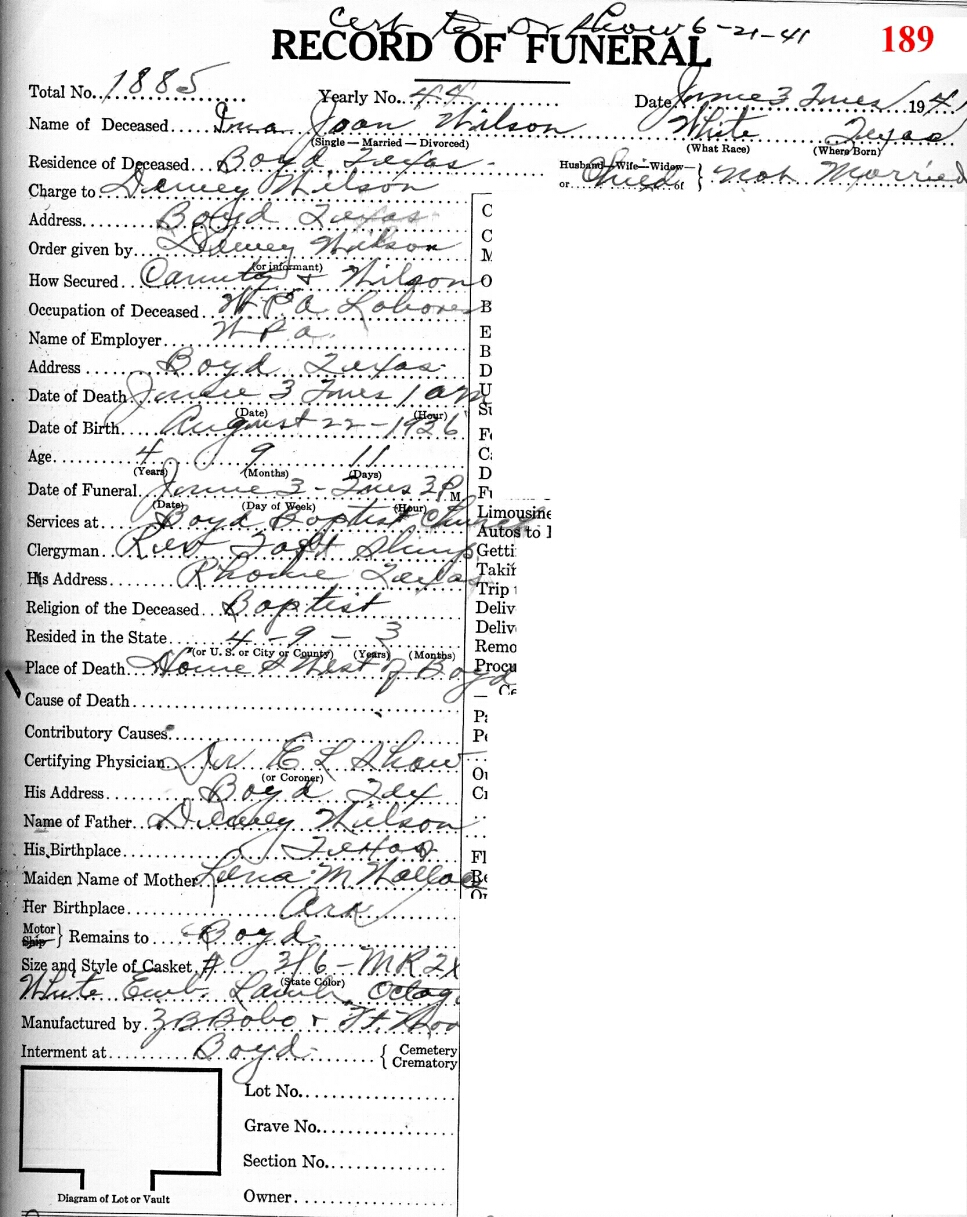 Cert to Dr Shaw 6-21-41
189
RECORD OF FUNERAL
Total No. 1885 Yearly No. 44 Date June 3 Tues 1941
Name of Deceased Ima Joan Wilson White Texas
(Single — Married — Divorced) (What Race) (Where Born)
Residence of Deceased Boyd Texas Husband—Wife—Widow— or Child of } Not Married
Charge to Dewey Wilson
Address Boyd Texas
Order given by Dewey Wilson
(or informant)
How Secured County & Wilson
Occupation of Deceased W.P.A Laborer
Name of Employer W P a
Address Boyd Texas
Date of Death June 3 Tues 1 am
(Date) (Hour)
Date of Birth August 22 - 1936
Age 4 9 11
(Years) (Months) (Days)
Date of Funeral June 3 - Tues 3 P M
(Date) (Day of Week) (Hour)
Services at Boyd Baptist Church
Clergyman Rev Taft
His Address Rhome Texas
Religion of the Deceased Baptist
Resided in the State 4 - 9 - 3
(or U. S. or City or County) (Years) (Months)
Place of Death Home West of Boyd
Cause of Death
Contributory Causes
Certifying Physician Dr E L Shaw
(or Coroner)
His Address Boyd Tex
Name of Father Dewey Wilson
His Birthplace Texas
Maiden Name of Mother Lena M Wallace
Her Birthplace Ark
Motor Ship } Remains to Boyd
Size and Style of Casket # 3/6 - MR 2X
(State Color)
White Emb. Lamb Octag
Manufactured by Bobo & Ft. Wor
Interment at Boyd { Cemetery Crematory
Lot No.
Grave No.
Section No.
Owner
Diagram of Lot or Vault
C
C
M
O
B
E
B
D
U
St
F
C
D
F
Limousine
Autos to
Getti
Takin
Trip
Deliv
Deliv
Remo
Procu
Ce
P
Pe
Ou
C
Fl
Be
Or